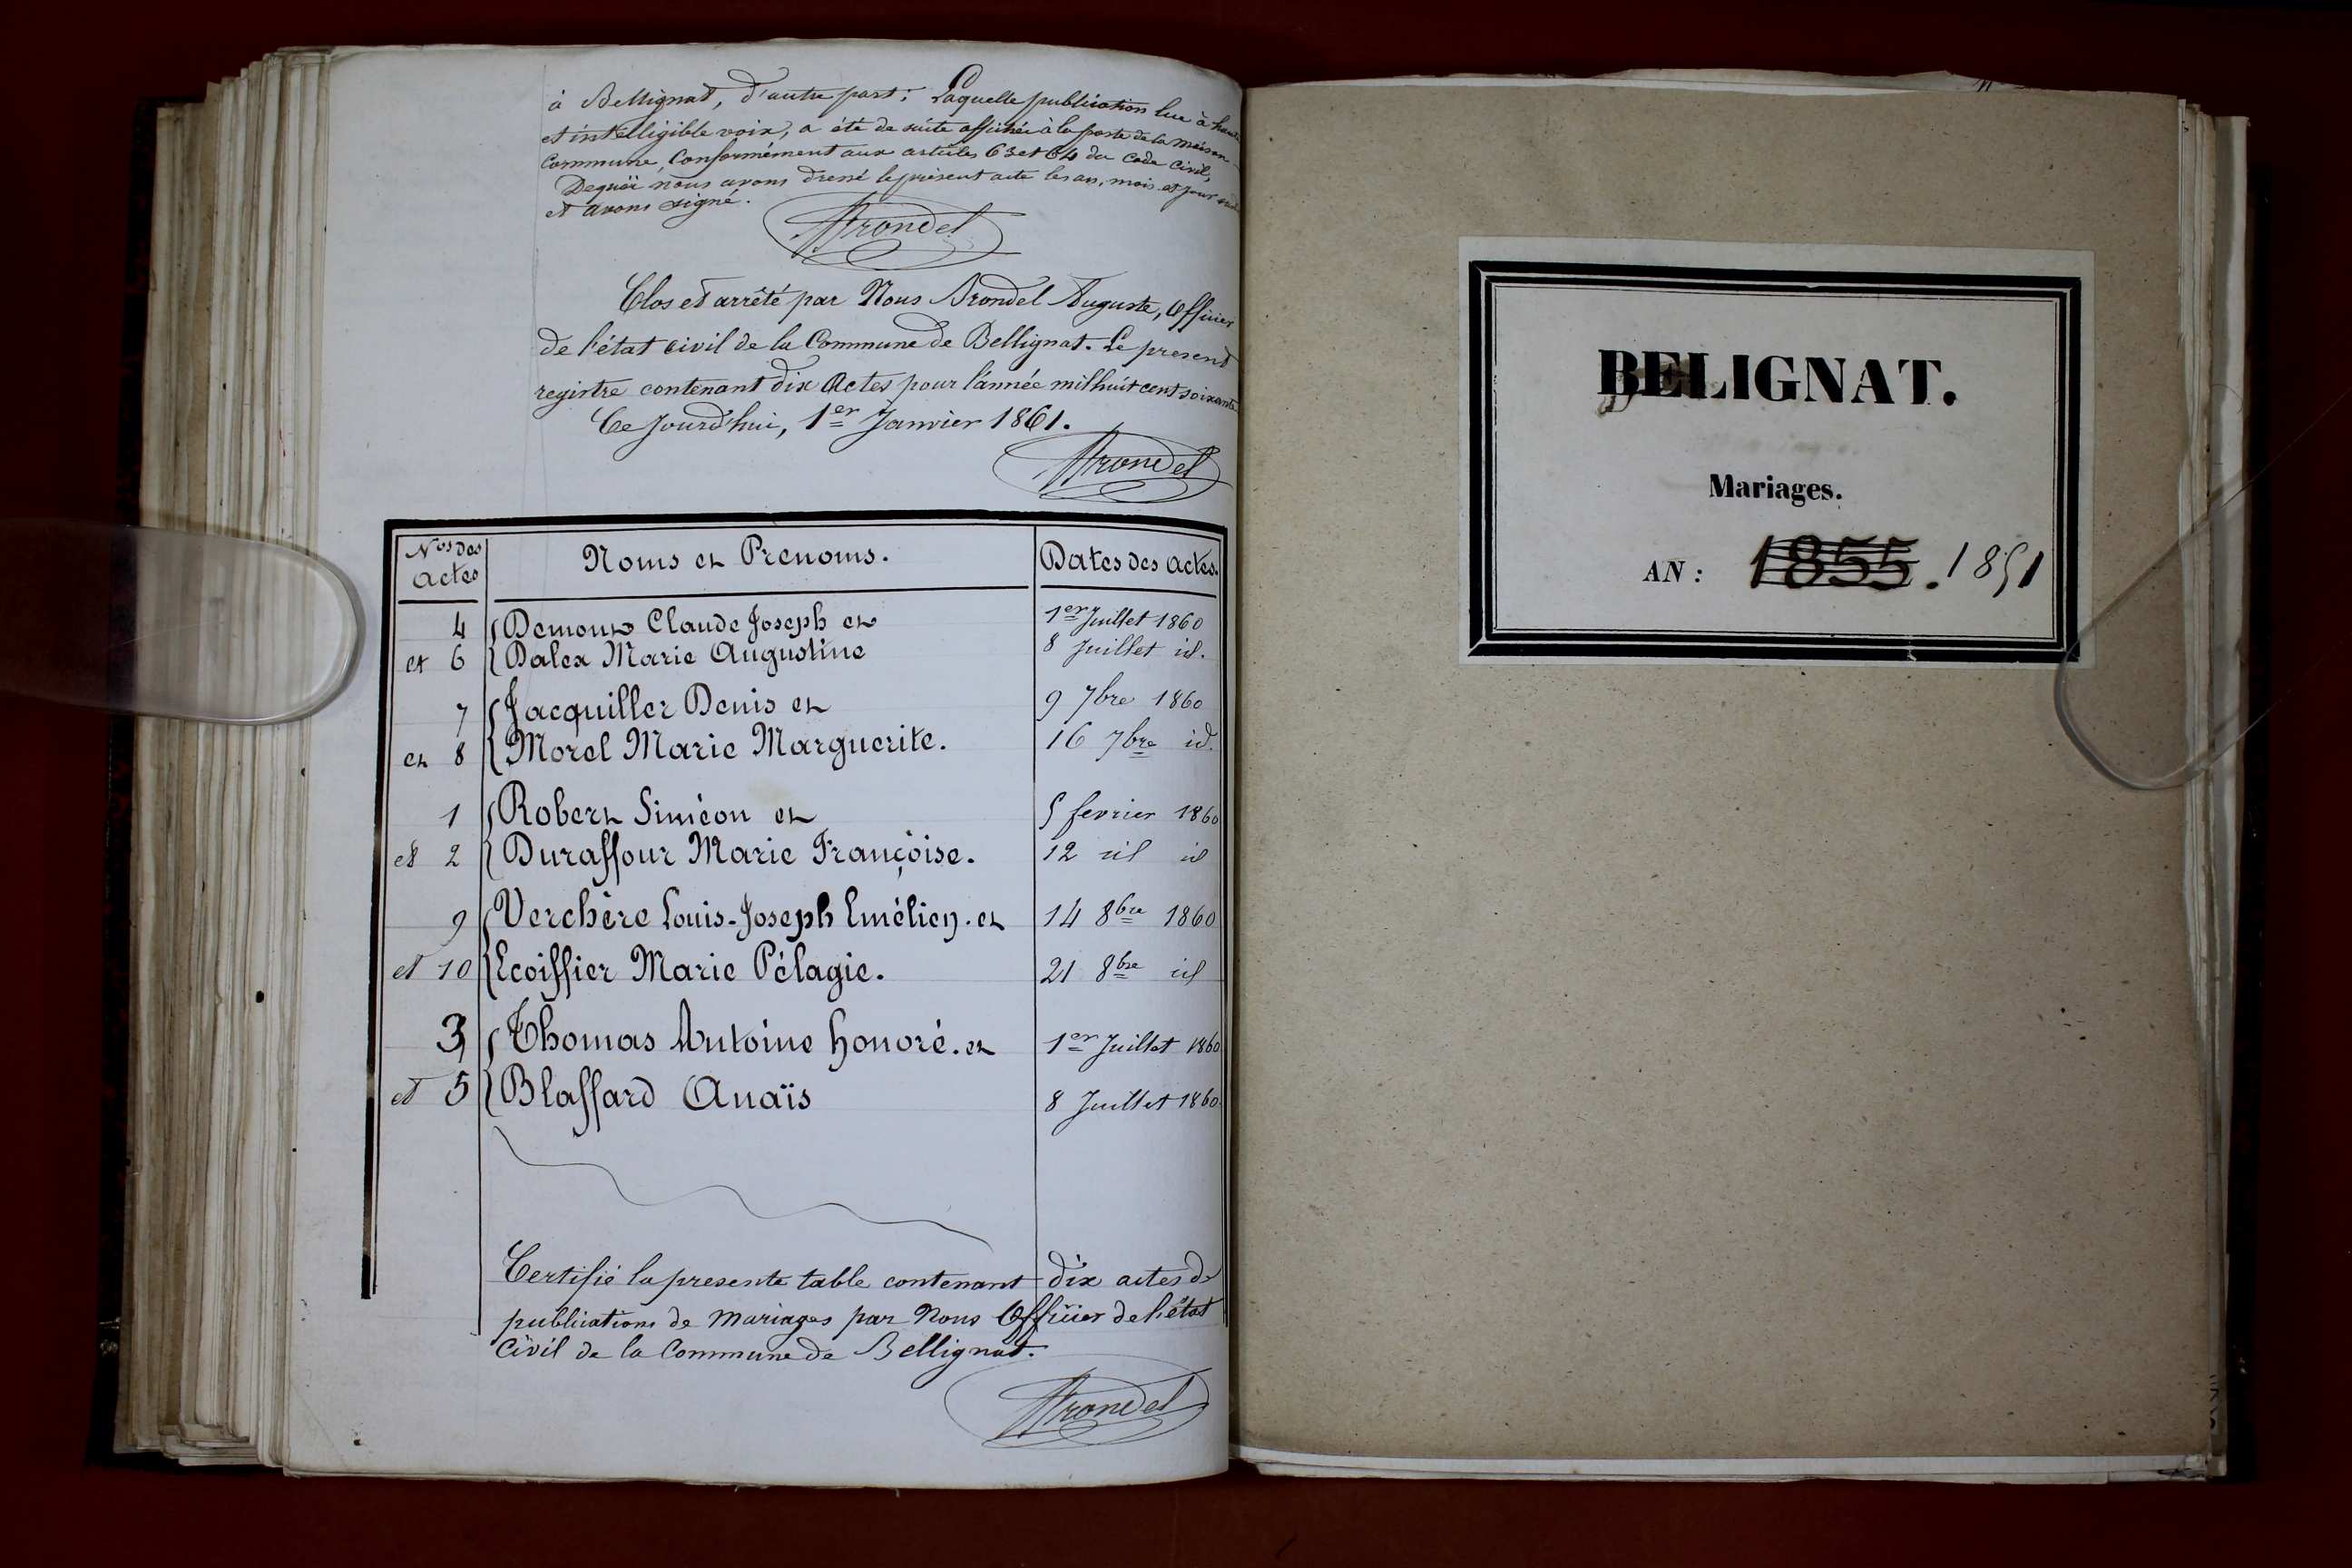 à Bellignat, d'autre part; Laquelle publication lue à haute
et intélligible voix, a été de suite affichée à la porte de la maison
Commune, Conformément aux articles 63 et 64 du Code Civil,
Dequoi nous avons dressé le présent acte les an, mois et jour
et avons signé.
Arondel
Clos et arrêté par Nous Arondel Auguste, Officier
de l'état civil de la Commune de Bellignat. Le present
registre contenant dix Actes pour l'année mil huit cent soixante
Ce Jourd'hui, 1er Janvier 1861.
Arondel
Nos des Actes
Noms et Prenoms.
Dates des Actes.
4 Demoux Claude Joseph et 1er Juillet 1860
et 6 Dalex Marie Augustine 8 Juillet id.
7 Jacquiller Denis et 9 7bre 1860
et 8 Morel Marie Marguerite. 16 7bre id.
1 Robert Siméon et 5 fevrier 1860
et 2 Duraffour Marie Françoise. 12 id id
9 Verchère Louis-Joseph Emélien. et 14 8bre 1860
et 10 Ecoiffier Marie Pélagie. 21 8bre id
3 Thomas Antoine honoré. et 1er Juillet 1860
et 5 Blaffard Anaïs 8 Juillet 1860
Certifié la presente table contenant dix actes de
publications de mariages par Nous Officier de l'état
Civil de la Commune de Bellignat.
Arondel
BELIGNAT.
Mariages.
AN : 1855. 1851